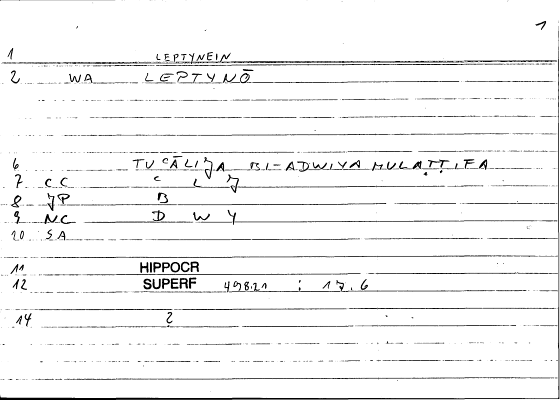 1
1 LEPTYNEIN
2 WA LEPTYNŌ
6 TUʿĀLIǦA BI-ADWIYA MULAṬṬIFA
7 CC ʿ L Ǧ
8 ǦP B
9 NC D W Y
10 SA
11 HIPPOCR
12 SUPERF 498.21 : 17.6
14 2